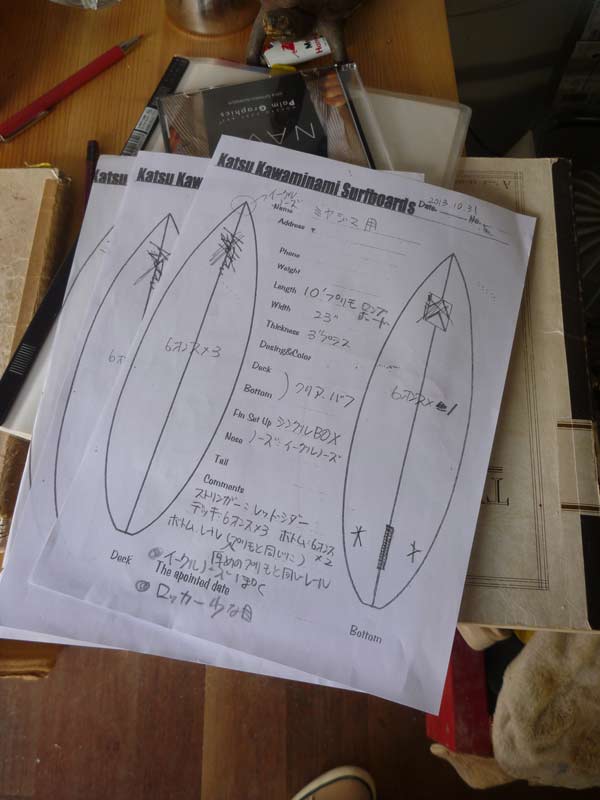 Katsu Kawaminami Surfboards
Date 2013.10.31
No.
イーグル
ノーズ
Name ミヤジマ用
Address
Phone
Weight
Length 10'プリモ ロング
ボード
Width 23"
Thickness 3"プラス
Desing&Color
Deck
Bottom ) クリアーバフ
Fin Set Up シングルBOX
Nose ノーズ:イーグルノーズ
Tail
Comments
ストリンガー:レッドシダー
デッキ:6オンス×3 ボトム:6オンス
×2
ボトム、レール(プリモと同じに)
厚めのプリモと同じレール
イーグルノーズっぽく
The apointed date
ロッカー少な目
6オンス×3
Deck
6オンス×
Bottom
Katsu Kaw
Katsu
6オ
Palm Graphics
NAV